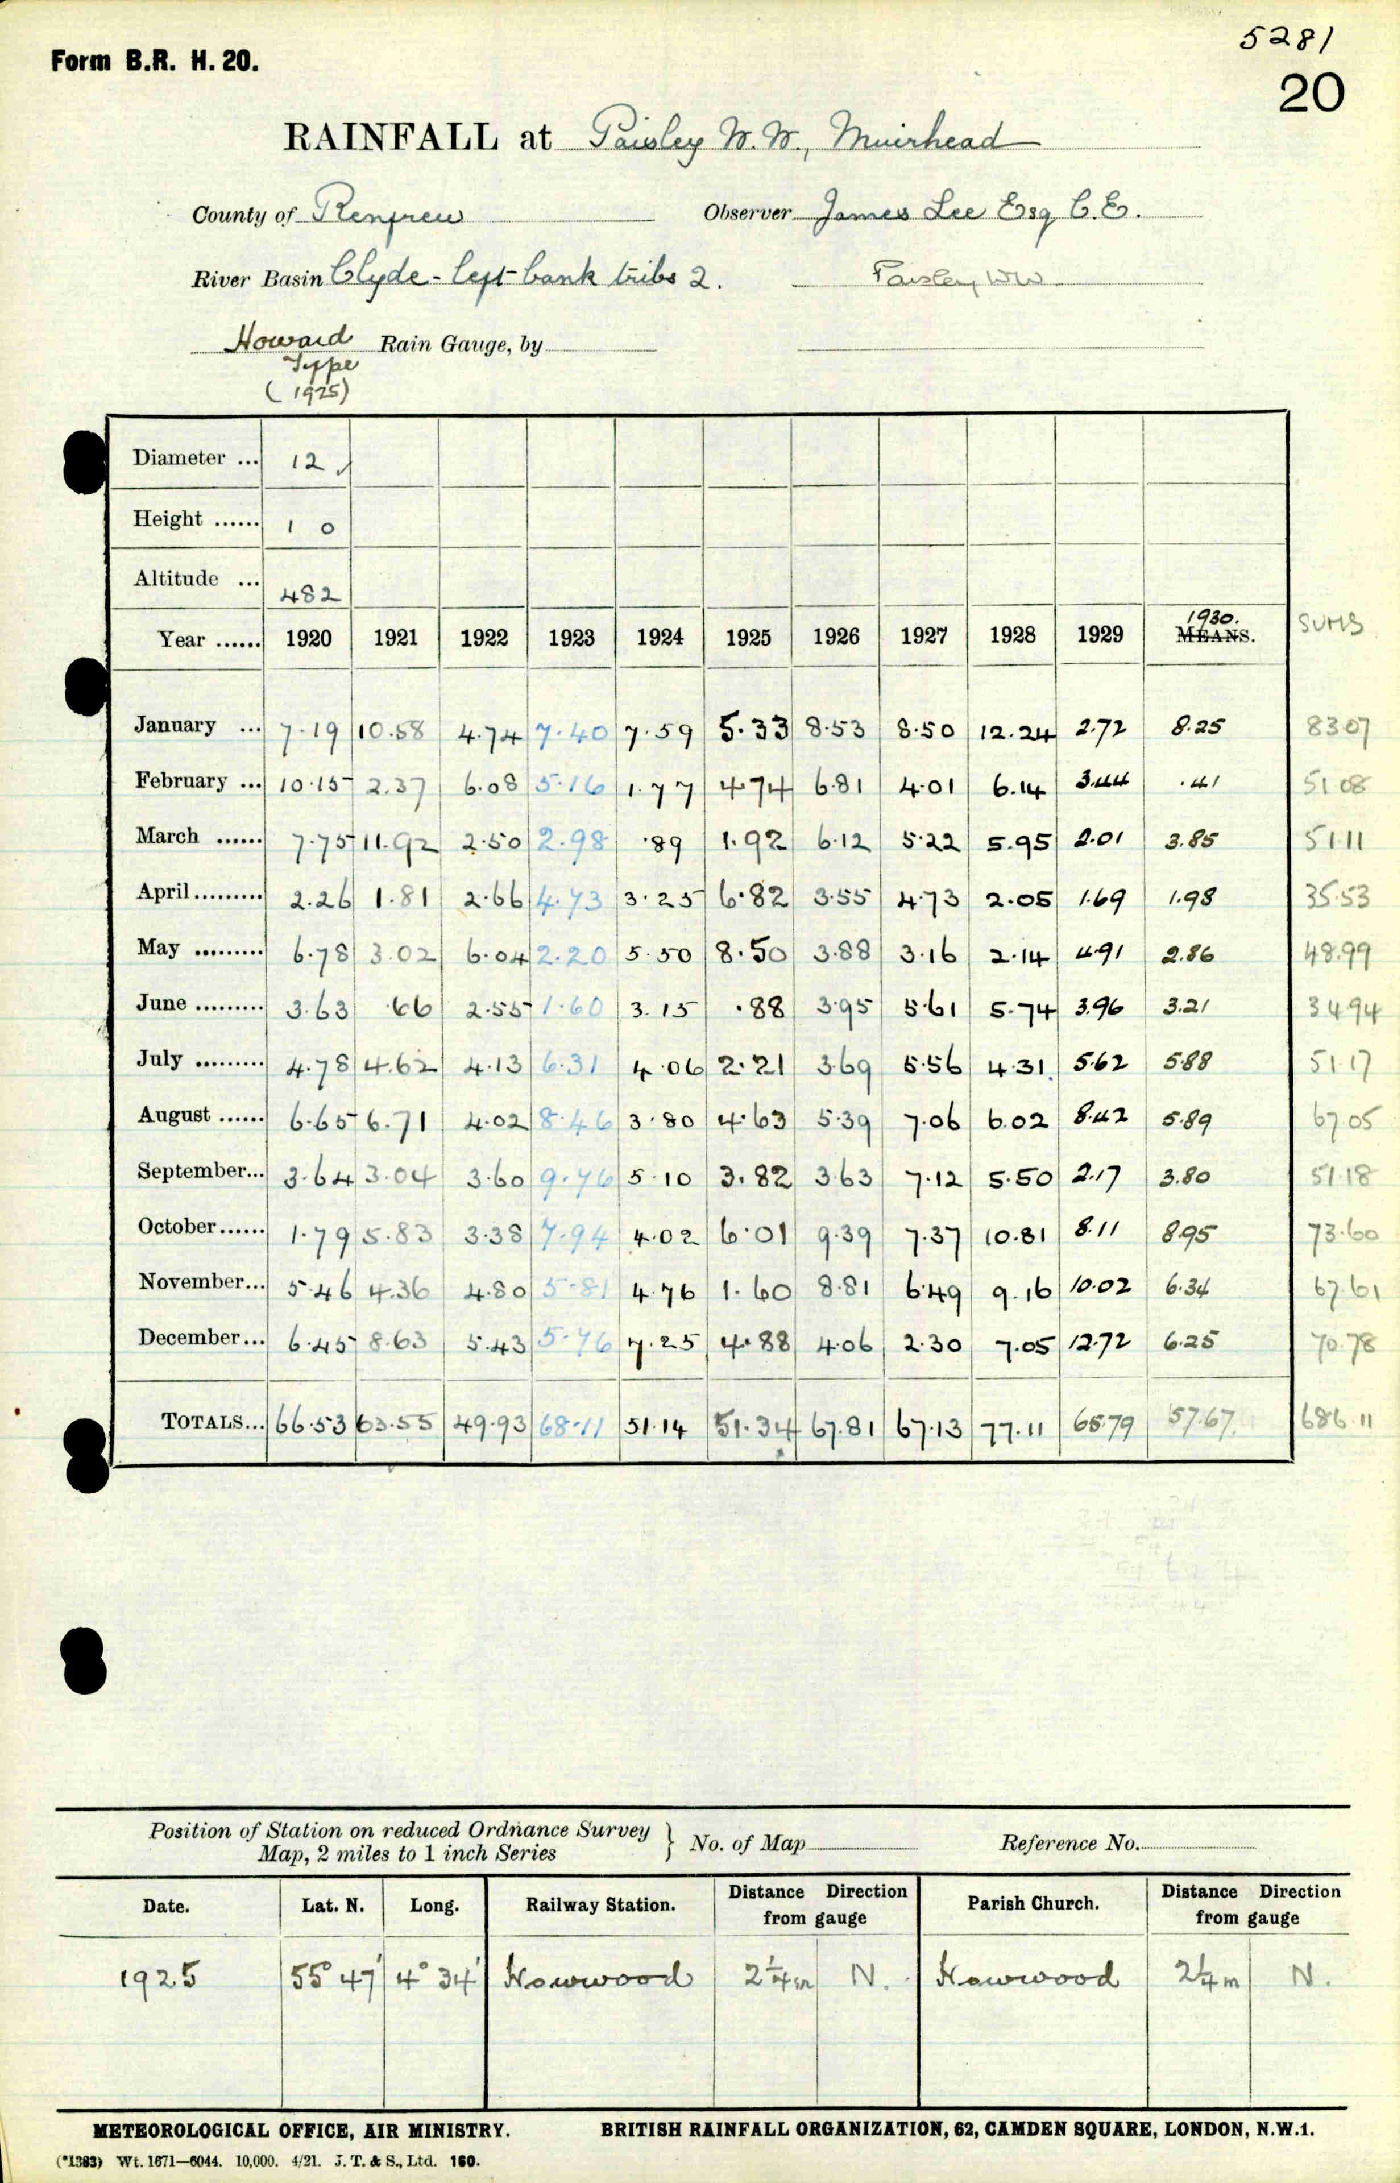 5281
Form B.R. H. 20.
20
RAINFALL at Paisley W.W., Muirhead
County of Renfrew Observer James Lee Esq C.E.
River Basin Clyde - left bank tribs 2. Paisley WW
Howard Rain Gauge, by
Type
(1925)
Diameter ... 12 ✓
Height ...... 1 0
Altitude ... 482
1930. SUMS
Year ...... 1920 1921 1922 1923 1924 1925 1926 1927 1928 1929 MEANS.
January ... 7.19 10.58 4.74 7.40 7.59 5.33 8.53 8.50 12.24 2.72 8.25 83.07
February ... 10.15 2.37 6.08 5.16 1.77 4.74 6.81 4.01 6.14 3.44 .41 51.08
March ...... 7.75 11.92 2.50 2.98 .89 1.92 6.12 5.22 5.95 2.01 3.85 51.11
April ......... 2.26 1.81 2.66 4.73 3.25 6.82 3.55 4.73 2.05 1.69 1.98 35.53
May ......... 6.78 3.02 6.04 2.20 5.50 8.50 3.88 3.16 2.14 4.91 2.86 48.99
June ......... 3.63 .66 2.55 1.60 3.15 .88 3.95 5.61 5.74 3.96 3.21 34.94
July ......... 4.78 4.62 4.13 6.31 4.06 2.21 3.69 5.56 4.31 5.62 5.88 51.17
August ...... 6.65 6.71 4.02 8.46 3.80 4.63 5.39 7.06 6.02 8.42 5.89 67.05
September... 3.64 3.04 3.60 9.76 5.10 3.82 3.63 7.12 5.50 2.17 3.80 51.18
October...... 1.79 5.83 3.38 7.94 4.02 6.01 9.39 7.37 10.81 8.11 8.95 73.60
November... 5.46 4.36 4.80 5.81 4.76 1.60 8.81 6.49 9.16 10.02 6.34 67.61
December... 6.45 8.63 5.43 5.76 7.25 4.88 4.06 2.30 7.05 12.72 6.25 70.78
TOTALS... 66.53 63.55 49.93 68.11 51.14 51.34 67.81 67.13 77.11 65.79 57.67 686.11
Position of Station on reduced Ordnance Survey
Map, 2 miles to 1 inch Series } No. of Map Reference No.
Date. Lat. N. Long. Railway Station. Distance Direction from gauge Parish Church. Distance Direction from gauge
1925 55° 47' 4° 34' Howwood 2¼ m N. Howwood 2¼ m N.
METEOROLOGICAL OFFICE, AIR MINISTRY. BRITISH RAINFALL ORGANIZATION, 62, CAMDEN SQUARE, LONDON, N.W.1.
(*1383) Wt. 1671—6044. 10,000. 4/21. J. T. & S., Ltd. 160.